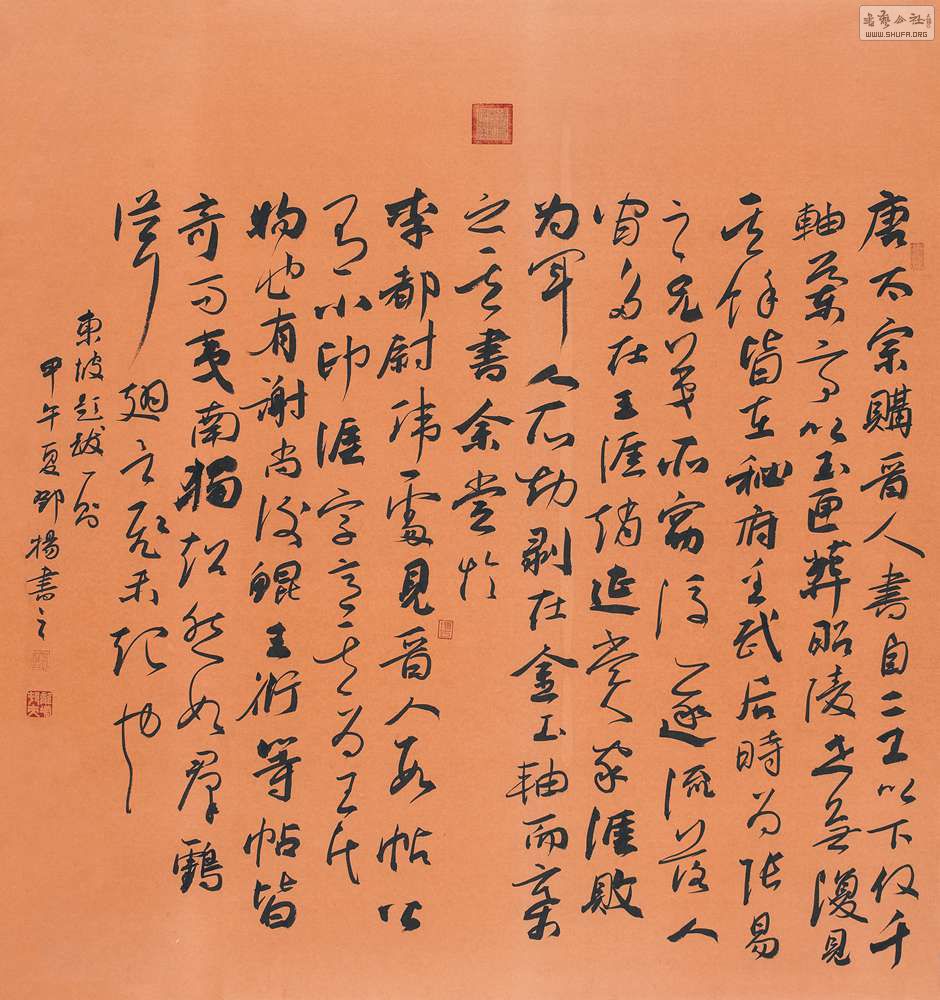 唐太宗購晉人書自二王以下仅千
軸蘭亭以玉匣葬昭陵世無復見
其餘皆在秘府至武后時為張易
之兄弟所竊後遂流落人
間多在王涯延賞家涯敗
为軍人所劫剝在金玉軸而棄
之其書余嘗於
李都尉瑋處見晉人數帖
有小印涯字意其為王氏
物也有謝尚後鯤王衍等帖皆
奇而夷南獨超然如群鶴
聳翅飛未起也
東坡題跋一則
甲午夏揚書之
書艺公社
WWW.SHUFA.ORG